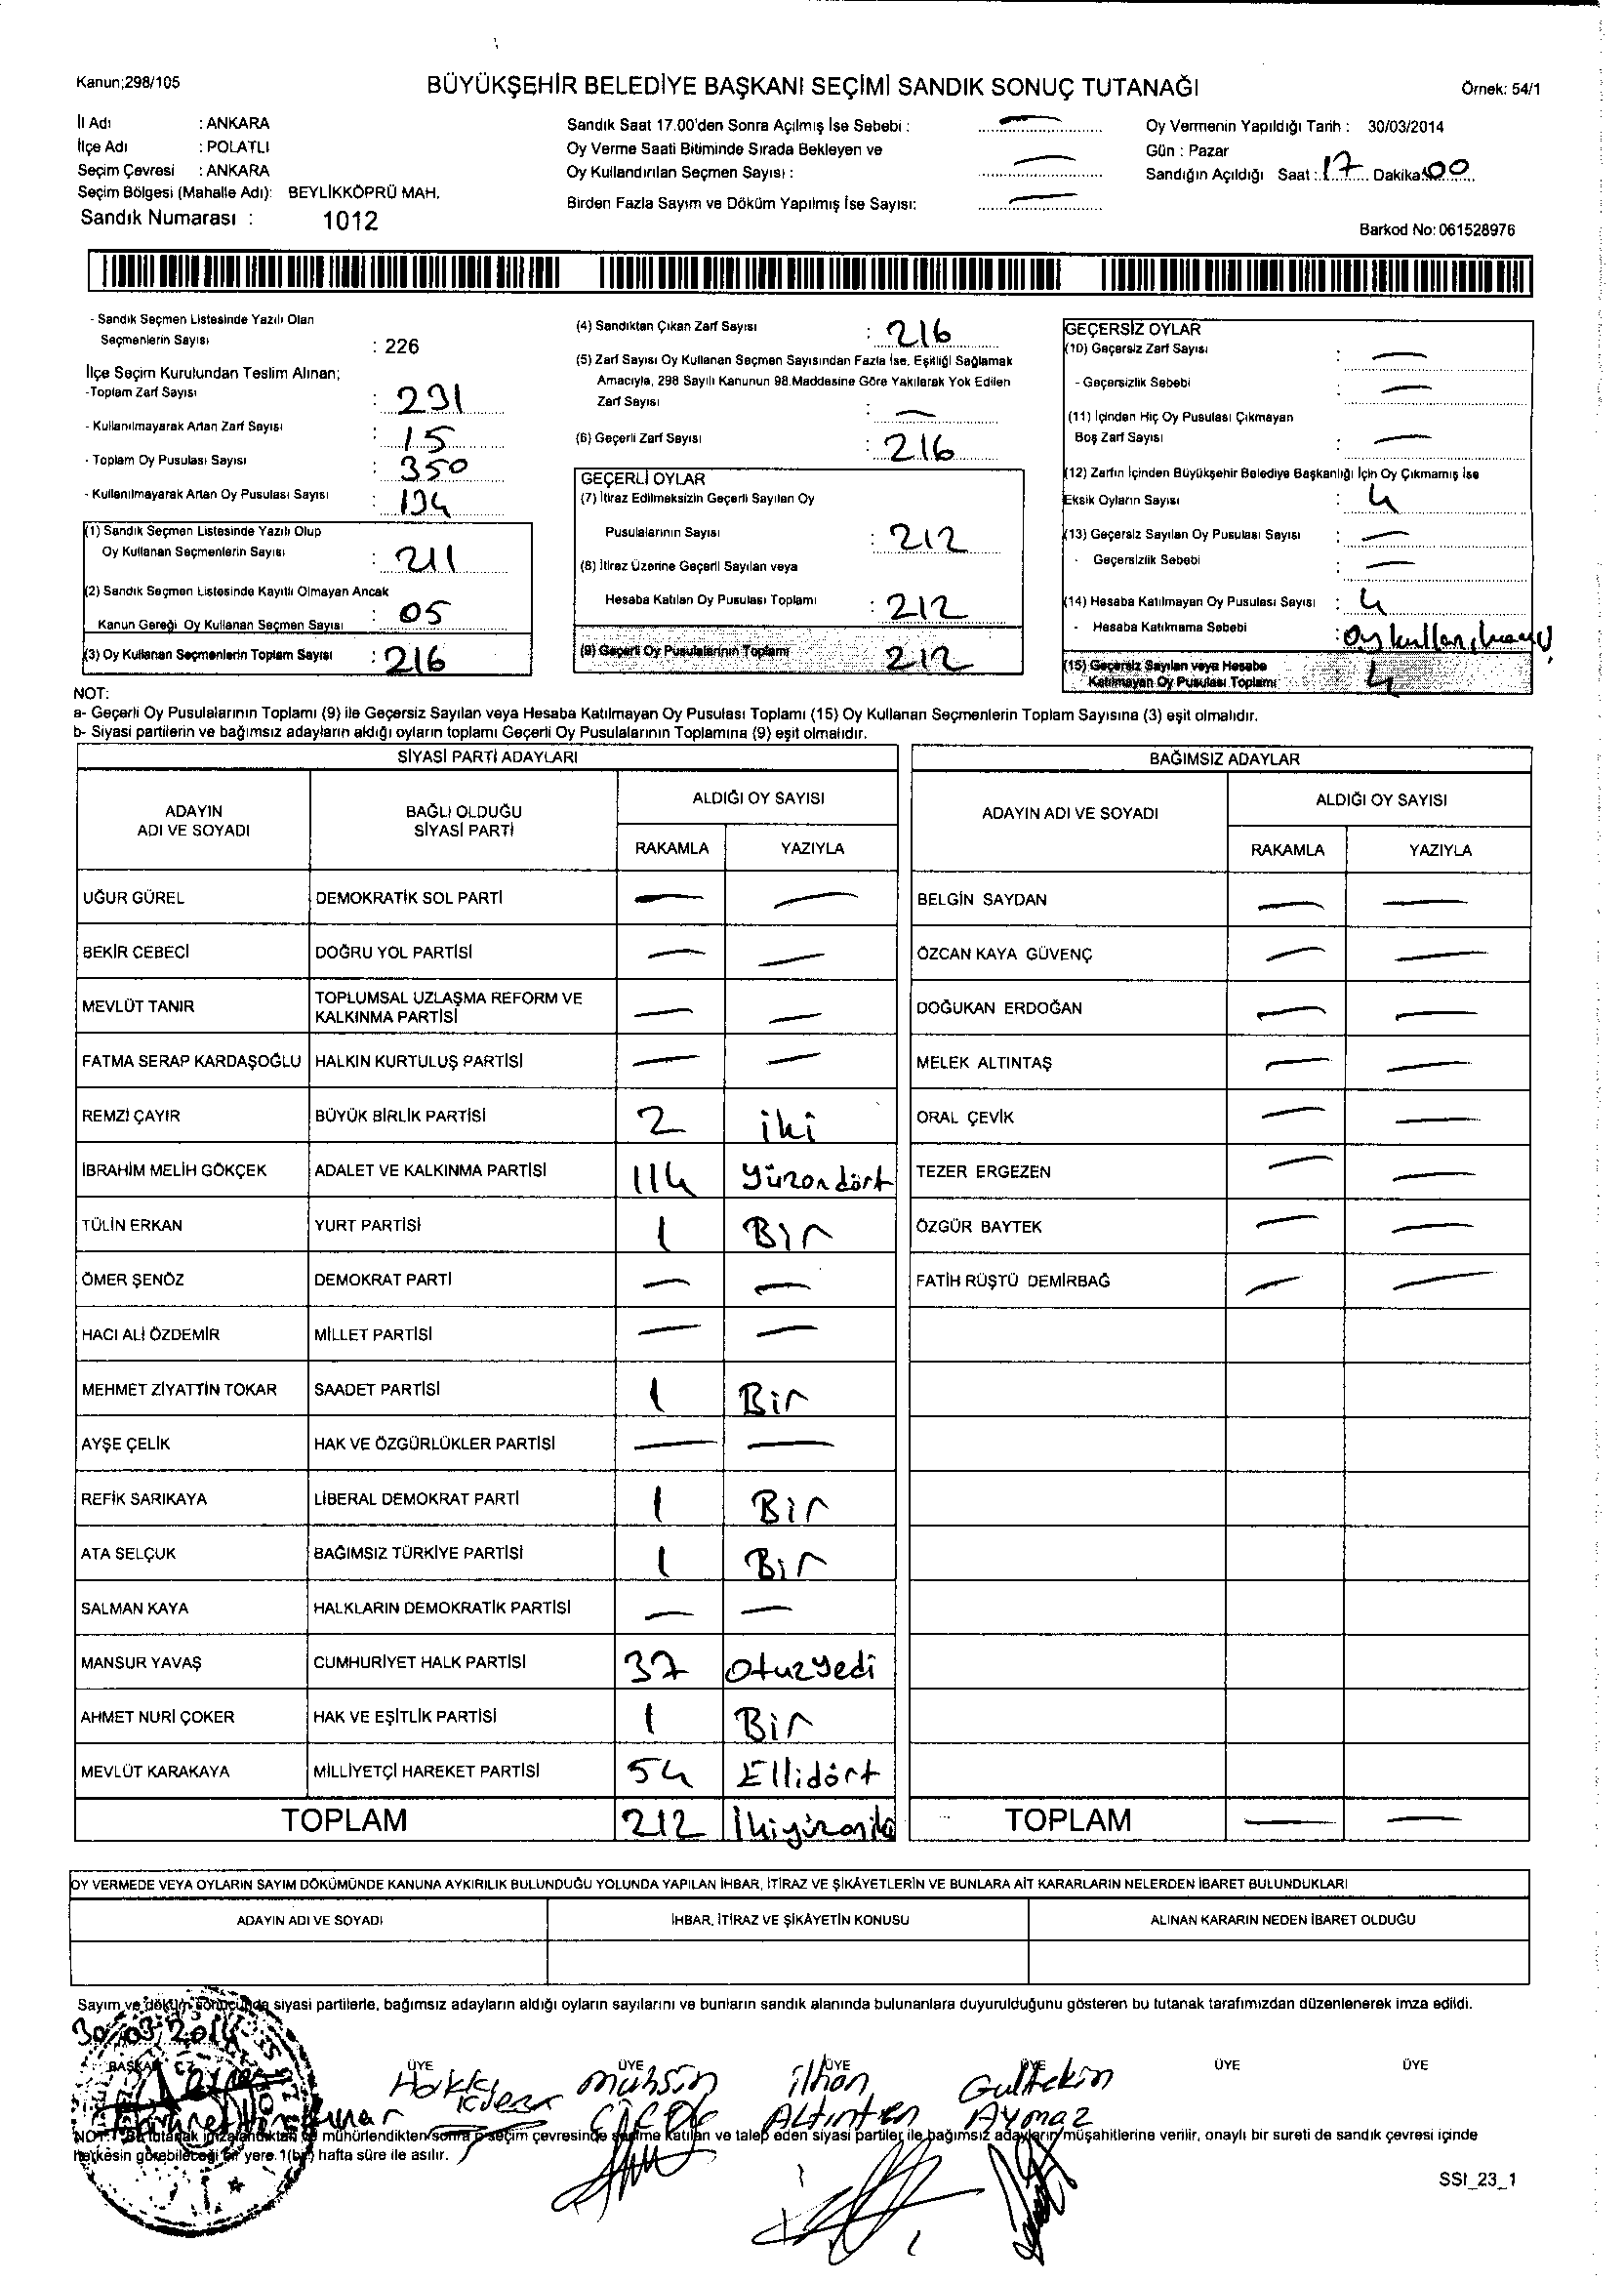 Kanun;298/105
BÜYÜKŞEHİR BELEDİYE BAŞKANI SEÇİMİ SANDIK SONUÇ TUTANAĞI
Örnek: 54/1
İl Adı : ANKARA
İlçe Adı : POLATLI
Seçim Çevresi : ANKARA
Seçim Bölgesi (Mahalle Adı): BEYLİKKÖPRÜ MAH.
Sandık Numarası : 1012
Sandık Saat 17.00'den Sonra Açılmış İse Sebebi : —
Oy Verme Saati Bitiminde Sırada Bekleyen ve
Oy Kullandırılan Seçmen Sayısı : —
Birden Fazla Sayım ve Döküm Yapılmış İse Sayısı: —
Oy Vermenin Yapıldığı Tarih : 30/03/2014
Gün : Pazar
Sandığın Açıldığı Saat : 17 Dakika 00
Barkod No: 061528976
- Sandık Seçmen Listesinde Yazılı Olan
Seçmenlerin Sayısı : 226
İlçe Seçim Kurulundan Teslim Alınan;
-Toplam Zarf Sayısı : 231
- Kullanılmayarak Artan Zarf Sayısı : 15
- Toplam Oy Pusulası Sayısı : 350
- Kullanılmayarak Artan Oy Pusulası Sayısı : 134
(1) Sandık Seçmen Listesinde Yazılı Olup
Oy Kullanan Seçmenlerin Sayısı : 211
(2) Sandık Seçmen Listesinde Kayıtlı Olmayan Ancak
Kanun Gereği Oy Kullanan Seçmen Sayısı : 05
(3) Oy Kullanan Seçmenlerin Toplam Sayısı : 216
(4) Sandıktan Çıkan Zarf Sayısı : 216
(5) Zarf Sayısı Oy Kullanan Seçmen Sayısından Fazla İse, Eşitliği Sağlamak
Amacıyla, 298 Sayılı Kanunun 98.Maddesine Göre Yakılarak Yok Edilen
Zarf Sayısı : —
(6) Geçerli Zarf Sayısı : 216
GEÇERLİ OYLAR
(7) İtiraz Edilmeksizin Geçerli Sayılan Oy
Pusulalarının Sayısı : 212
(8) İtiraz Üzerine Geçerli Sayılan veya
Hesaba Katılan Oy Pusulası Toplamı : 212
(9) Geçerli Oy Pusulalarının Toplamı 212
GEÇERSİZ OYLAR
(10) Geçersiz Zarf Sayısı : —
- Geçersizlik Sebebi : —
(11) İçinden Hiç Oy Pusulası Çıkmayan
Boş Zarf Sayısı : —
(12) Zarfın İçinden Büyükşehir Belediye Başkanlığı İçin Oy Çıkmamış İse
Eksik Oyların Sayısı : 4
(13) Geçersiz Sayılan Oy Pusulası Sayısı : —
- Geçersizlik Sebebi : —
(14) Hesaba Katılmayan Oy Pusulası Sayısı : 4
- Hesaba Katılmama Sebebi :
(15) Geçersiz Sayılan veya Hesaba
Katılmayan Oy Pusulası Toplamı 4
NOT:
a- Geçerli Oy Pusulalarının Toplamı (9) ile Geçersiz Sayılan veya Hesaba Katılmayan Oy Pusulası Toplamı (15) Oy Kullanan Seçmenlerin Toplam Sayısına (3) eşit olmalıdır.
b- Siyasi partilerin ve bağımsız adayların aldığı oyların toplamı Geçerli Oy Pusulalarının Toplamına (9) eşit olmalıdır.
SİYASİ PARTİ ADAYLARI
ADAYIN ADI VE SOYADI BAĞLI OLDUĞU SİYASİ PARTİ ALDIĞI OY SAYISI
RAKAMLA YAZIYLA
UĞUR GÜREL DEMOKRATİK SOL PARTİ — —
BEKİR CEBECİ DOĞRU YOL PARTİSİ — —
MEVLÜT TANIR TOPLUMSAL UZLAŞMA REFORM VE KALKINMA PARTİSİ — —
FATMA SERAP KARDAŞOĞLU HALKIN KURTULUŞ PARTİSİ — —
REMZİ ÇAYIR BÜYÜK BİRLİK PARTİSİ 2 iki
İBRAHİM MELİH GÖKÇEK ADALET VE KALKINMA PARTİSİ 114 Yüzondört
TÜLİN ERKAN YURT PARTİSİ 1 Bir
ÖMER ŞENÖZ DEMOKRAT PARTİ — —
HACI ALİ ÖZDEMİR MİLLET PARTİSİ — —
MEHMET ZİYATTİN TOKAR SAADET PARTİSİ 1 Bir
AYŞE ÇELİK HAK VE ÖZGÜRLÜKLER PARTİSİ — —
REFİK SARIKAYA LİBERAL DEMOKRAT PARTİ 1 Bir
ATA SELÇUK BAĞIMSIZ TÜRKİYE PARTİSİ 1 Bir
SALMAN KAYA HALKLARIN DEMOKRATİK PARTİSİ — —
MANSUR YAVAŞ CUMHURİYET HALK PARTİSİ 37 Otuzyedi
AHMET NURİ ÇOKER HAK VE EŞİTLİK PARTİSİ 1 Bir
MEVLÜT KARAKAYA MİLLİYETÇİ HAREKET PARTİSİ 54 Ellidört
TOPLAM 212 İkiyüzoniki
BAĞIMSIZ ADAYLAR
ADAYIN ADI VE SOYADI ALDIĞI OY SAYISI
RAKAMLA YAZIYLA
BELGİN SAYDAN — —
ÖZCAN KAYA GÜVENÇ — —
DOĞUKAN ERDOĞAN — —
MELEK ALTINTAŞ — —
ORAL ÇEVİK — —
TEZER ERGEZEN — —
ÖZGÜR BAYTEK — —
FATİH RÜŞTÜ DEMİRBAĞ — —
TOPLAM — —
OY VERMEDE VEYA OYLARIN SAYIM DÖKÜMÜNDE KANUNA AYKIRILIK BULUNDUĞU YOLUNDA YAPILAN İHBAR, İTİRAZ VE ŞİKÂYETLERİN VE BUNLARA AİT KARARLARIN NELERDEN İBARET BULUNDUKLARI
ADAYIN ADI VE SOYADI İHBAR, İTİRAZ VE ŞİKÂYETİN KONUSU ALINAN KARARIN NEDEN İBARET OLDUĞU
Sayım ve döküm sonucunda siyasi partilerle, bağımsız adayların aldığı oyların sayılarını ve bunların sandık alanında bulunanlara duyurulduğunu gösteren bu tutanak tarafımızdan düzenlenerek imza edildi.
30/03/2014
BAŞKAN ÜYE ÜYE ÜYE ÜYE ÜYE ÜYE
Hakkı Muhsin ilhan Gültekin
ALTINTEN AYMAZ
NOT: Bu tutanak imzalandıktan ve mühürlendikten sonra seçim çevresinde seçime katılan ve talep eden siyasi partiler ile bağımsız adayların müşahitlerine verilir, onaylı bir sureti de sandık çevresi içinde
herkesin görebileceği bir yere 1(bir) hafta süre ile asılır.
SSI_23_1